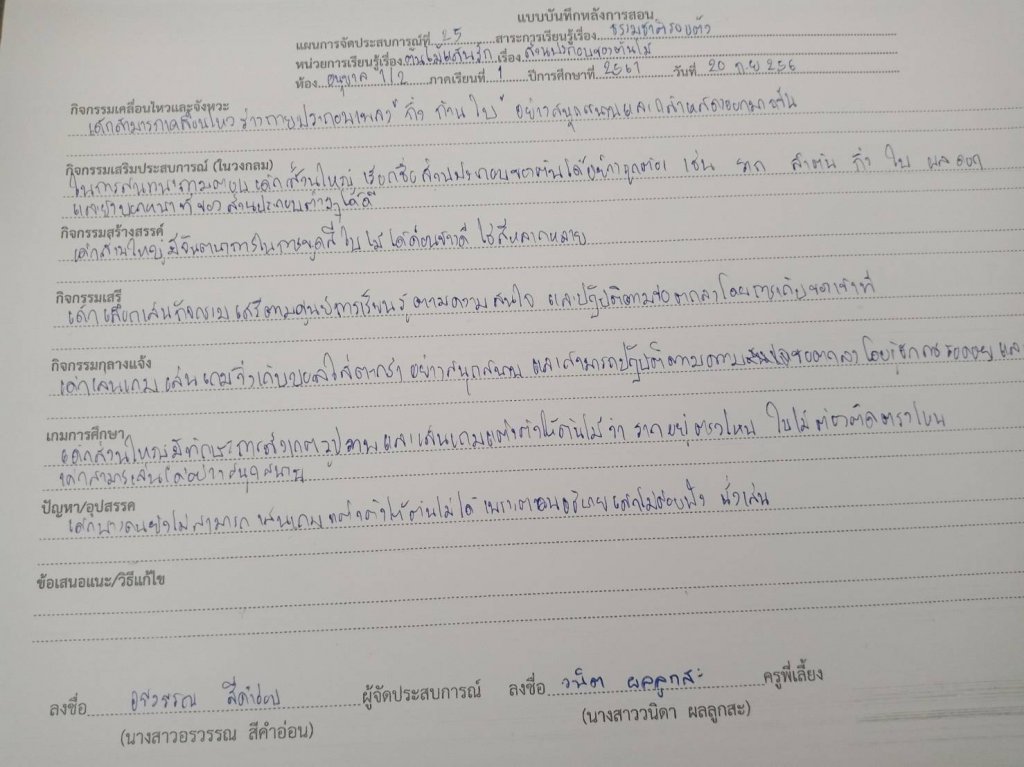 แบบบันทึกหลังการสอน
แผนการจัดประสบการณ์ที่ 25 สาระการเรียนรู้เรื่อง ธรรมชาติรอบตัว
หน่วยการเรียนรู้เรื่อง ต้นไม้แสนรัก เรื่อง ส่วนประกอบของต้นไม้
ห้อง อนุบาล 1/2 ภาคเรียนที่ 1 ปีการศึกษาที่ 2561 วันที่ 20 ก.ย 256
กิจกรรมเคลื่อนไหวและจังหวะ
เด็กสามารถเคลื่อนไหวร่างกายประกอบเพลง " กิ่ง ก้าน ใบ " อย่างสนุกสนานและ
กิจกรรมเสริมประสบการณ์ (ในวงกลม)
ในการสนทนาถามตอบ เด็กส่วนใหญ่ เรียกชื่อส่วนประกอบของต้นไม้ได้อย่างถูกต้อง เช่น ราก ลำต้น กิ่ง ใบ ผล ดอก
และยังบอกหน้าที่ของส่วนประกอบต่างๆได้ดี
กิจกรรมสร้างสรรค์
เด็กส่วนใหญ่มีจินตนาการในการ สี ใบไม้ ได้ค่อนข้างดี ใช้สีหลากหลาย
กิจกรรมเสรี
เด็กเลือกเล่นกิจกรรมเสรีตามศูนย์การเรียนรู้ตามความสนใจ และปฏิบัติตามข้อตกลงโดยการเก็บของเข้าที่
กิจกรรมกลางแจ้ง
เด็กเล่นเกม เล่นเกมวิ่งเก็บบอลใส่ตะกร้า อย่างสนุกสนาน และสามารถปฏิบัติตาม ข้อตกลง โดยรู้จักการรอคอย และ
เกมการศึกษา
เด็กส่วนใหญ่มีทักษะการสังเกตรูปภาพและเล่นเกมแต่งตัวให้ต้นไม้ว่า รากอยู่ตรงไหน ใบไม้ต้องติดตรงไหน
เด็กสามารถเล่นได้อย่างสนุกสนาน
ปัญหา/อุปสรรค
เด็กบางคนยังไม่สามารถ เล่นเกม แต่งตัวให้ต้นไม้ได้ เพราะตอนอธิบายเด็กไม่ค่อยฟัง นั่งเล่น
ข้อเสนอแนะ/วิธีแก้ไข
ลงชื่อ อรวรรณ สีคำอ่อน ผู้จัดประสบการณ์ ลงชื่อ วนิดา ผลลูกสะ ครูพี่เลี้ยง
(นางสาวอรวรรณ สีคำอ่อน) (นางสาววนิดา ผลลูกสะ)